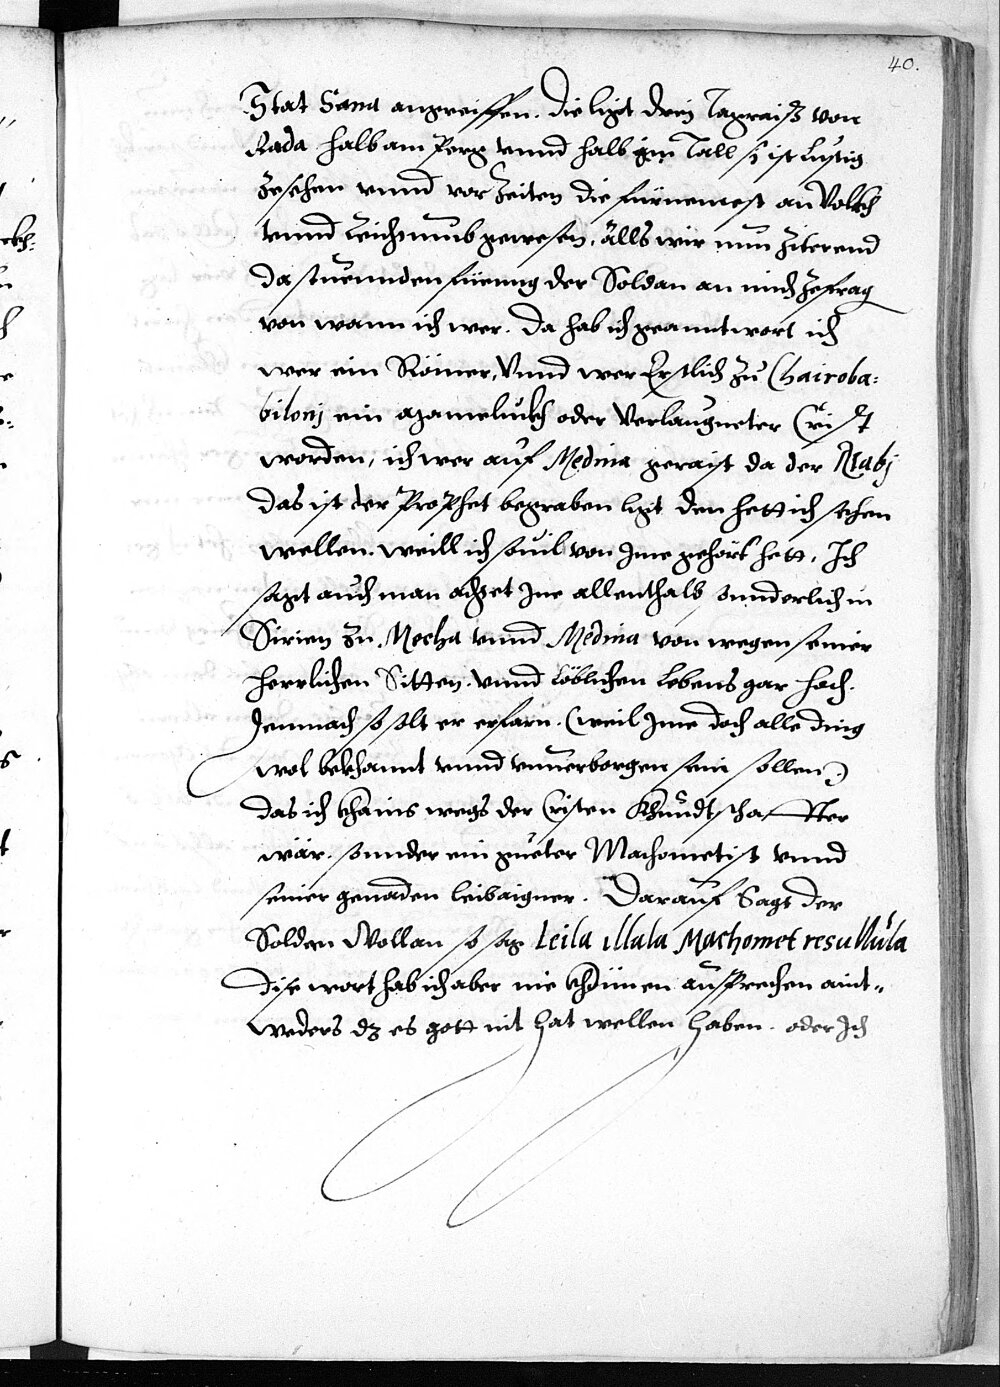 40.
Stat Sana angreiffen. die ligt drej Tagraiß von
Rada halb am Perg vnnd halb im Tall sy ist lustig
zesehen vnnd vor Zeiten die fürnemest an Volckh
vnnd Reichtumb gewesen. Alls wir nun ziterend
da stuennden fieng der Soldan an mich ze frag
von wann ich wer. da hab ich geanntwort ich
wer ein Römer, Vnnd wer Erstlich zu Chairoba-
bilonj ein Mameluckh oder verlaugneter Crist
worden, ich wer auf Medina geraist da der Nabj
das ist der Prophet begraben ligt den hett ich sehen
wellen. weill ich souil von Jme gehört hett, Ich
sagt auch man achtet Jne allenthalb sunderlich in
Sirien zu Mecha vnnd Medina von wegen seiner
herrlichen Sitten vnnd löblichen lebens gar hoch.
Demnach so solt er erfarn. (weil Jme doch alle ding
wol bekhannt vnnd vnuerborgen sein sollen)
das ich khains wegs der Cristen Khundtschaffter
wär. sonnder ein gueter Machometist vnnd
seiner genaden leibaigner. Darauf sagt der
Soldan Wollan so sag Leila illala Machomet resullula
dise wort hab ich aber nie khünen aussprechen aint-
weders dz es gott nit hat wellen haben. oder Ich